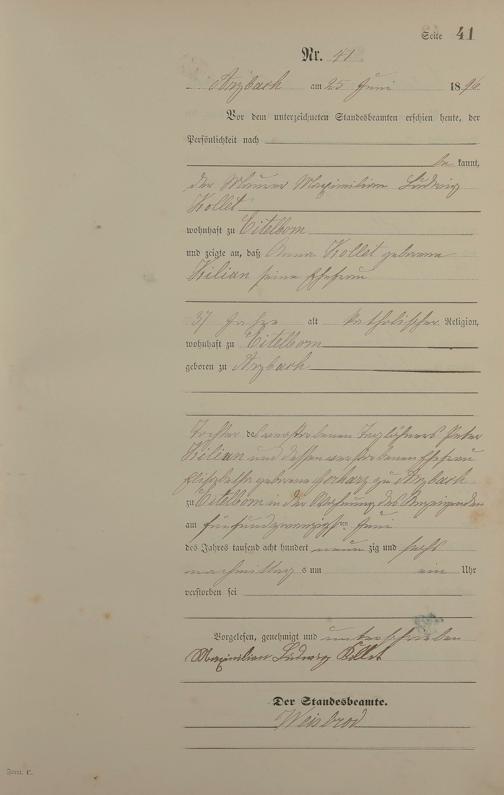 Seite 41
Nr. 41
Arzbach am 25 Juni 1896
Vor dem unterzeichneten Standesbeamten erschien heute, der
Persönlichkeit nach
be kannt,
der Maurer Maximilian Ludwig
Kollet
wohnhaft zu Eitelborn
und zeigte an, daß Anna Kollet geborene
Kilian seine Ehefrau
37 Jahre alt katholischer Religion,
wohnhaft zu Eitelborn
geboren zu Arzbach
Tochter des verstorbenen Taglöhners Peter
Kilian und dessen verstorbenen Ehefrau
Elisabetha geborene zu Arzbach
zu Eitelborn in der Wohnung des Anzeigenden
am fünfundzwanzigsten Juni
des Jahres tausend acht hundert neun zig und sechs
nachmittag s um ein Uhr
verstorben sei
Vorgelesen, genehmigt und unterschrieben
Maximilian Ludwig Kollet
Der Standesbeamte.
Weisbrod
Form. C.